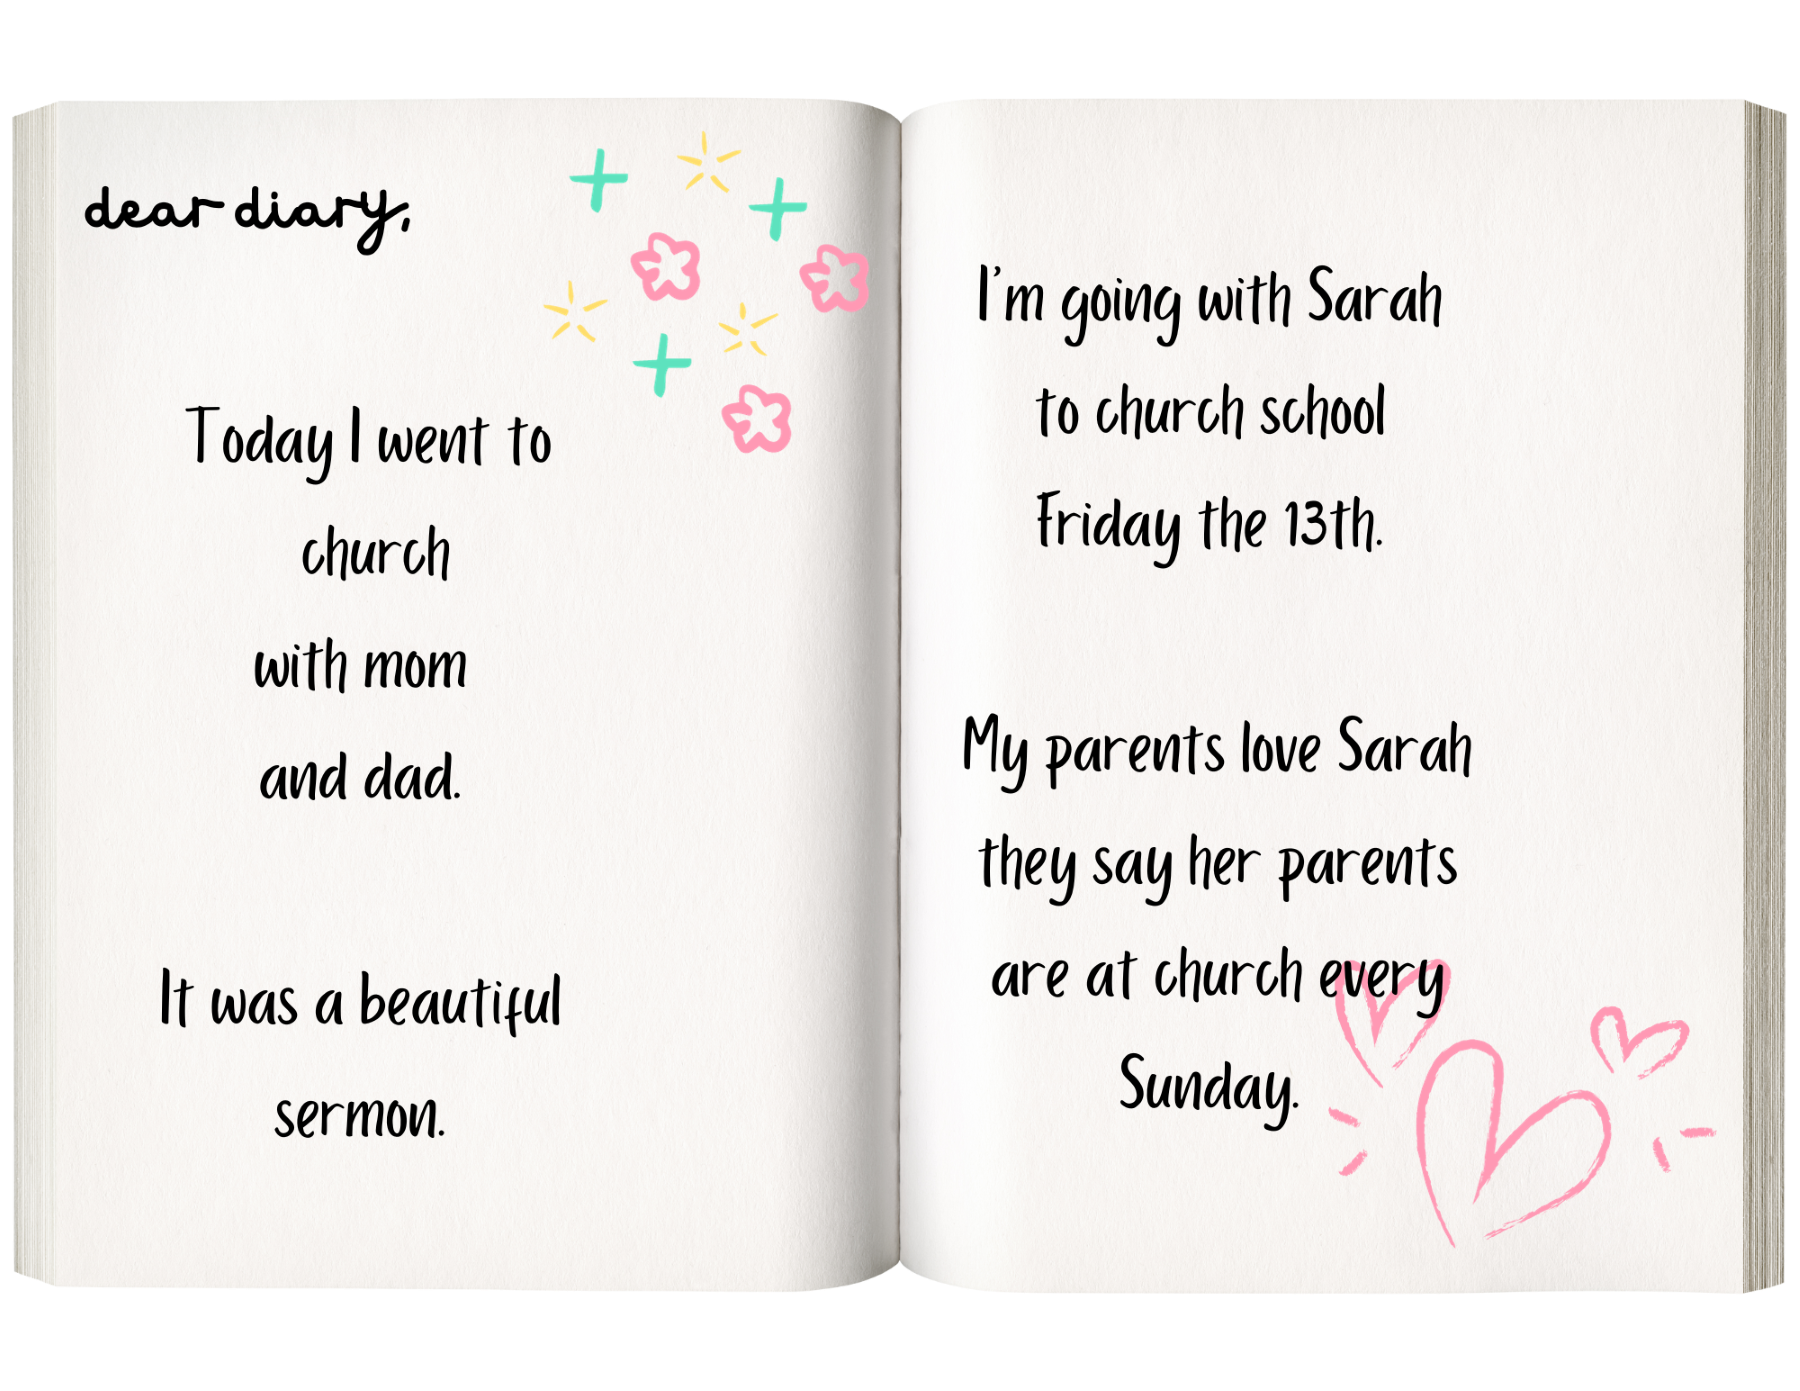 dear diary,
Today I went to
church
with mom
and dad.
It was a beautiful
sermon.
I'm going with Sarah
to church school
Friday the 13th.
My parents love Sarah
they say her parents
are at church every
Sunday.